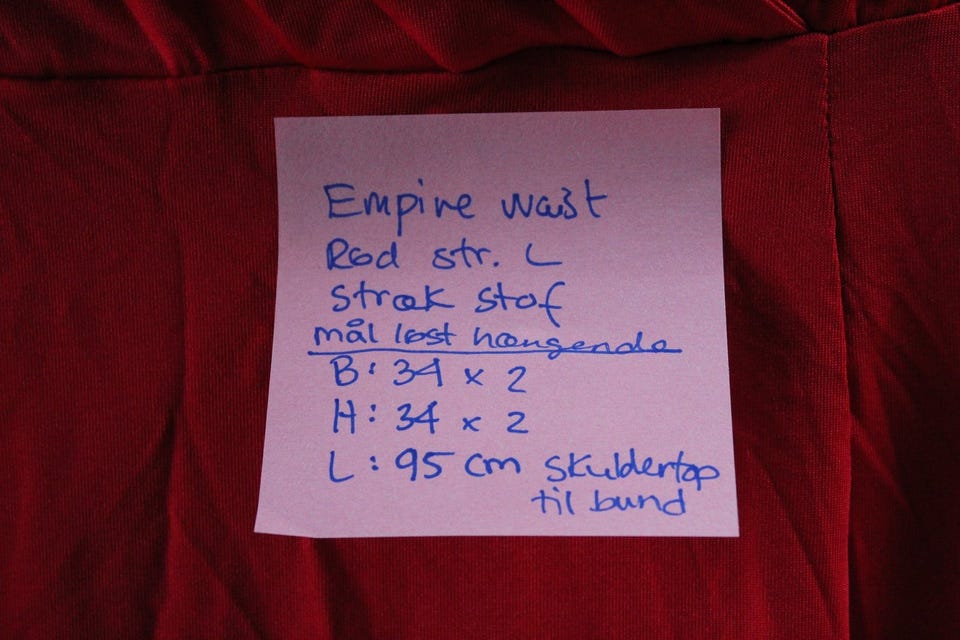 Empire waist
Rød str. L
stræk stof
mål løst hængende
B: 34 x 2
H: 34 x 2
L: 95 cm skuldertop
til bund